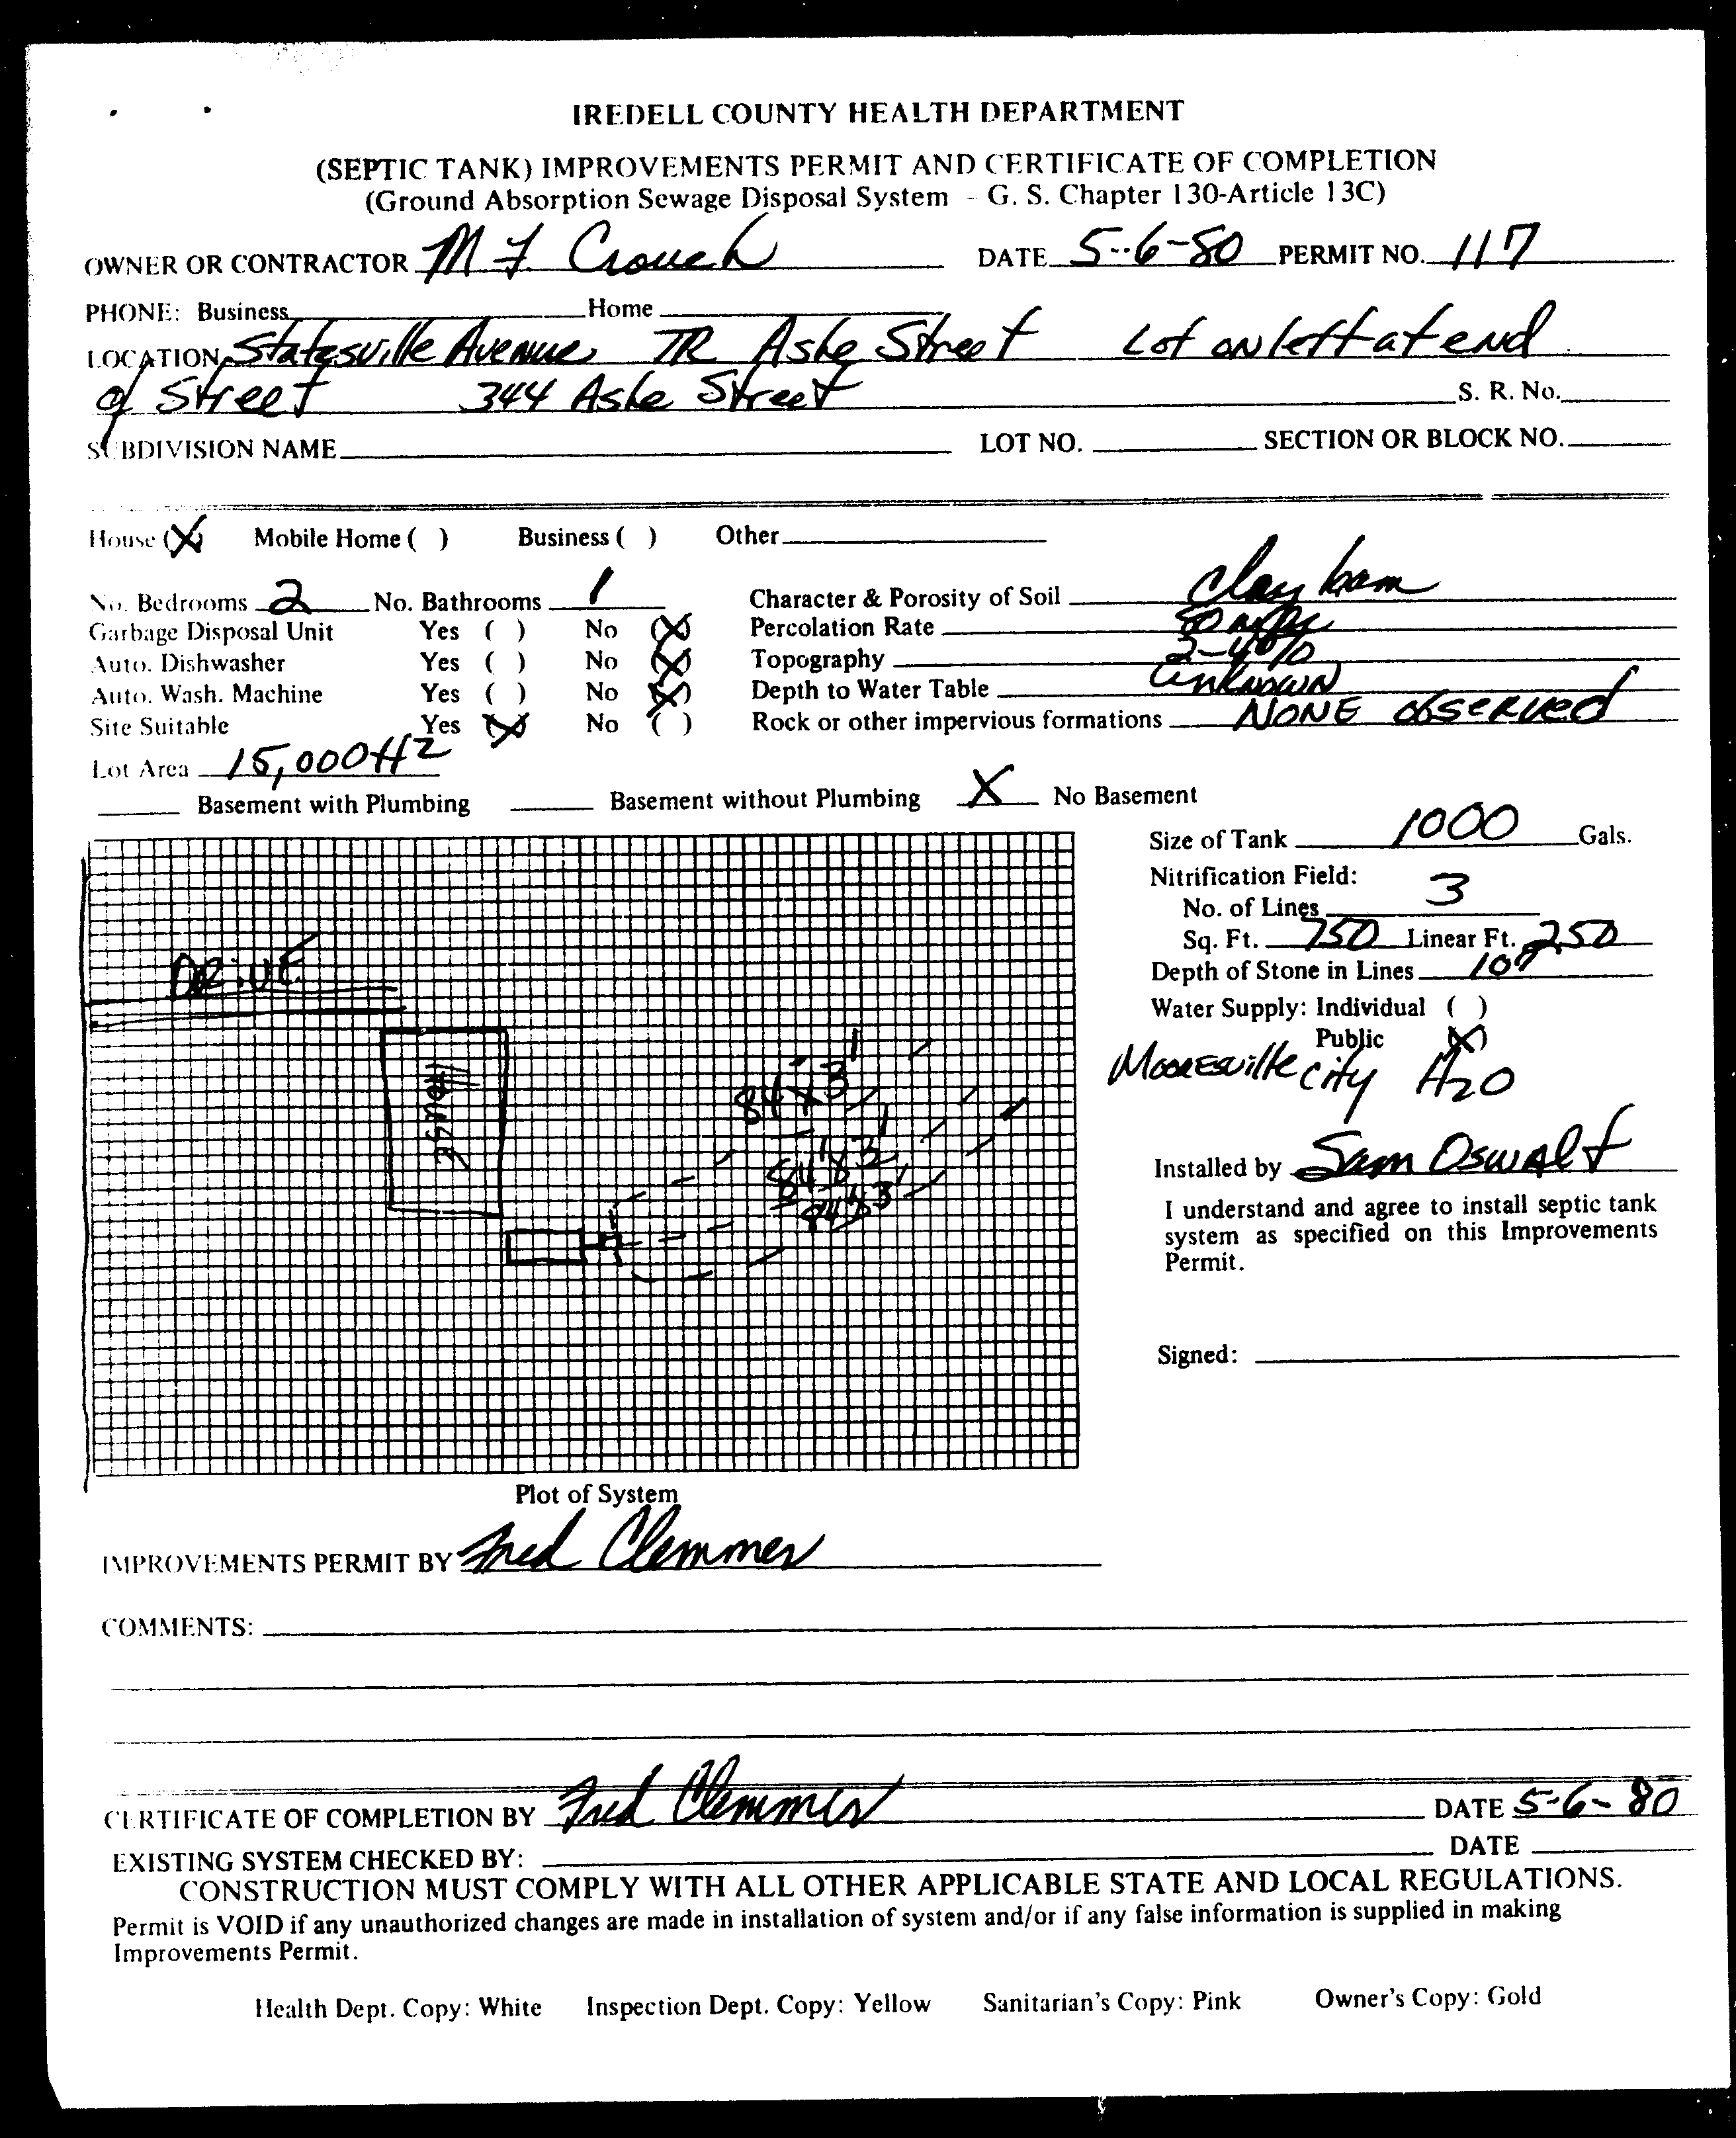 IREDELL COUNTY HEALTH DEPARTMENT
(SEPTIC TANK) IMPROVEMENTS PERMIT AND CERTIFICATE OF COMPLETION
(Ground Absorption Sewage Disposal System - G. S. Chapter 130-Article 13C)
OWNER OR CONTRACTOR M F. Crouch DATE 5-6-80 PERMIT NO. 117
PHONE: Business Home
LOCATION Statesville Avenue TR Ashe Street Lot on left at end
of Street 344 Ashe Street S. R. No.
SUBDIVISION NAME LOT NO. SECTION OR BLOCK NO.
House (X) Mobile Home ( ) Business ( ) Other
No. Bedrooms 2 No. Bathrooms 1 Character & Porosity of Soil Clay loam
Garbage Disposal Unit Yes ( ) No (X) Percolation Rate 50
Auto. Dishwasher Yes ( ) No (X) Topography 2-4%
Auto. Wash. Machine Yes ( ) No (X) Depth to Water Table unknown
Site Suitable Yes (X) No ( ) Rock or other impervious formations NONE observed
Lot Area 15,000 ft2
Basement with Plumbing Basement without Plumbing X No Basement
Size of Tank 1000 Gals.
Nitrification Field:
No. of Lines 3
Sq. Ft. 750 Linear Ft. 250
Depth of Stone in Lines 10"
Water Supply: Individual ( )
Public (X)
Mooresville City H2O
DRIVE
HOUSE
84 x 3'
84' x 3'
84 x 3'
Installed by Sam Oswalt
I understand and agree to install septic tank
system as specified on this Improvements
Permit.
Signed:
Plot of System
IMPROVEMENTS PERMIT BY Fred Clemmer
COMMENTS:
CERTIFICATE OF COMPLETION BY Fred Clemmer DATE 5-6-80
EXISTING SYSTEM CHECKED BY: DATE
CONSTRUCTION MUST COMPLY WITH ALL OTHER APPLICABLE STATE AND LOCAL REGULATIONS.
Permit is VOID if any unauthorized changes are made in installation of system and/or if any false information is supplied in making
Improvements Permit.
Health Dept. Copy: White Inspection Dept. Copy: Yellow Sanitarian's Copy: Pink Owner's Copy: Gold